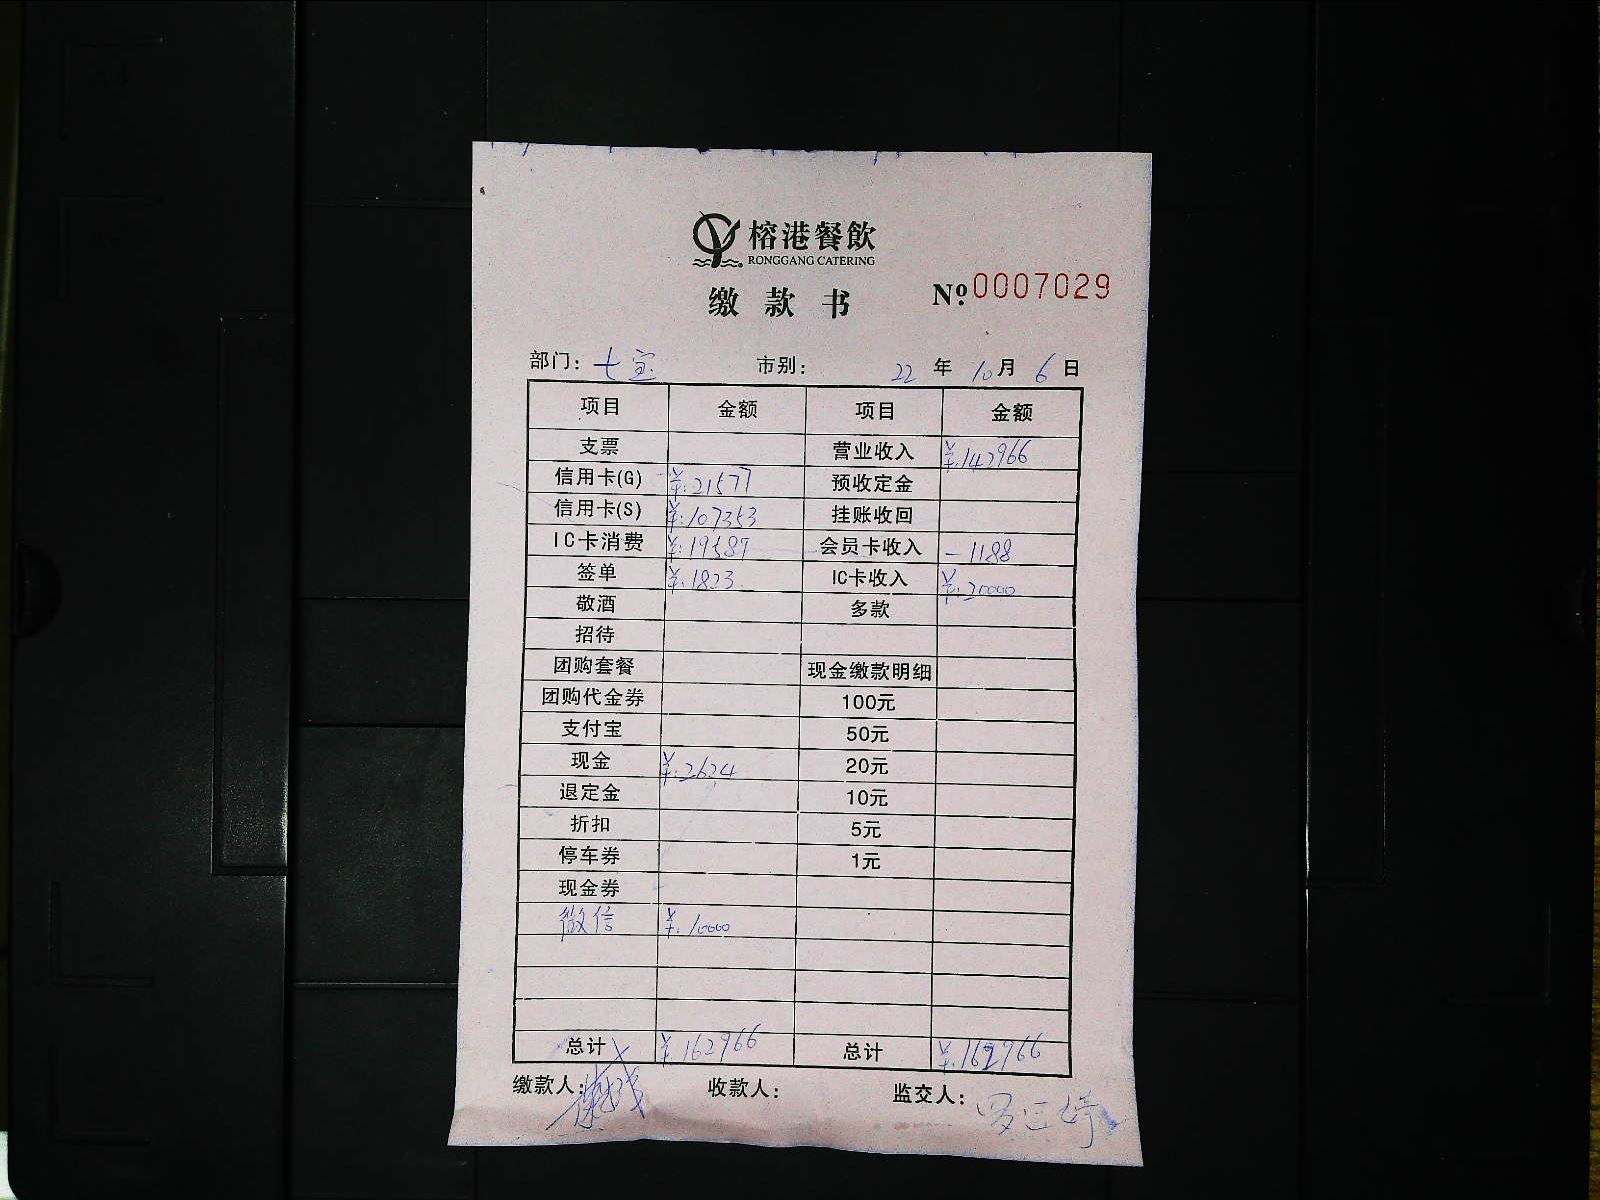 榕港餐飲
RONGGANG CATERING
缴款书 Nº 0007029
部门: 七宝 市别: 22 年 10 月 6 日
项目 金额 项目 金额
支票 营业收入 ¥:142966
信用卡(G) ¥:21577 预收定金
信用卡(S) ¥:107353 挂账收回
IC卡消费 ¥:19589 会员卡收入 -1188
签单 ¥:1823 IC卡收入 ¥:20000
敬酒 多款
招待
团购套餐 现金缴款明细
团购代金券 100元
支付宝 50元
现金 ¥:2624 20元
退定金 10元
折扣 5元
停车券 1元
现金券
微信 ¥:10000
总计 ¥:162966 总计 ¥:162966
缴款人: 收款人: 监交人: